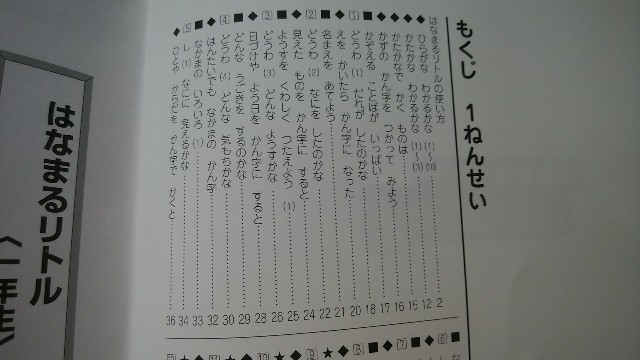 もくじ 1ねんせい
はなまるリトルの使い方
◆ ひらがな わかるかな (1)〜(10) 2
◆ かたかな わかるかな (1)〜(3) 12
◆ かたかなで かく ものは 15
◆ かずの かん字を つかって みよう 16
◆ かぞえる ことばが いっぱい 17
1 どうわ(1) だれが したのかな 18
◆ えを かいたら かん字に なった 20
■ 名まえを あてよう 21
2 どうわ(2) なにを したのかな 22
◆ 見えた ものを かん字に すると 24
■ ようすを くわしく つたえよう(1) 25
3 どうわ(3) どんな ようすかな 26
◆ 日づけや よう日を かん字に すると 28
■ どんな うごきを するのかな 29
4 どうわ(4) どんな 気もちかな 30
◆ はんたいでも なかまの かん字 32
■ なかまの いろいろ(1) 33
5 し(1) なにに 見えるかな 34
◆ ひとや からだを かん字で かくと 36
6 ■ ◆ 7 ■ ◆ 8 ■ ◆ ★ 9 ◆ ★ 10
はなまるリトル
〈一年生〉